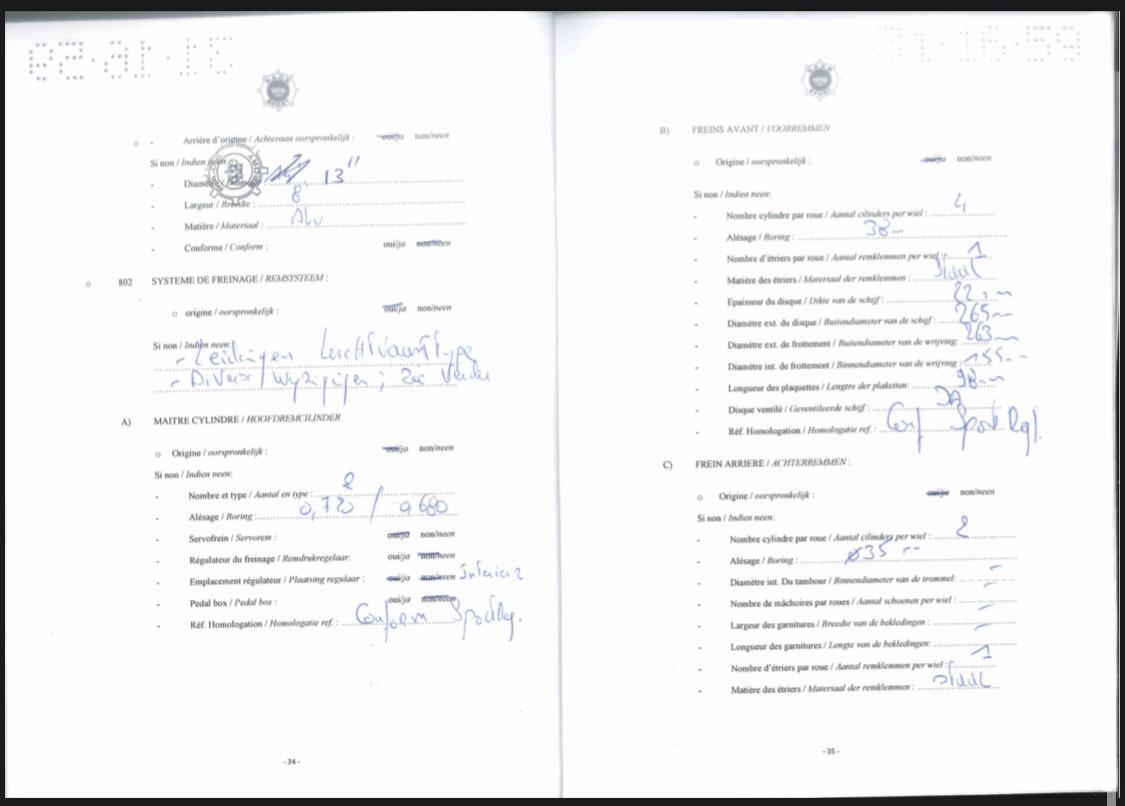 Arrière d'origine / Achteraan oorspronkelijk : oui/ja non/neen
Si non / Indien neen:
Diamètre / : 13"
Largeur / Breedte : 8"
Matière / Materiaal : Alu
Conforme / Conform : oui/ja non/neen
802 SYSTEME DE FREINAGE / REMSYSTEEM :
origine / oorspronkelijk : oui/ja non/neen
Si non / Indien neen:
- Leidingen Luchtvaarttype
- Diverse wijzigingen ; zie verder
A) MAITRE CYLINDRE / HOOFDREMCILINDER
Origine / oorspronkelijk : oui/ja non/neen
Si non / Indien neen:
- Nombre et type / Aantal en type : 2
- Alésage / Boring : 0,720 / 0,680
- Servofrein / Servorem : oui/ja non/neen
- Régulateur du freinage / Remdrukregelaar: oui/ja non/neen
- Emplacement régulateur / Plaatsing regulaar : oui/ja non/neen
- Pedal box / Pedal box : oui/ja non/neen
- Réf. Homologation / Homologatie ref. : Conform SportReg.
- 34 -
B) FREINS AVANT / VOORREMMEN
Origine / oorspronkelijk : oui/ja non/neen
Si non / Indien neen:
- Nombre cylindre par roue / Aantal cilinders per wiel : 4
- Alésage / Boring : 38
- Nombre d'étriers par roue / Aantal remklemmen per wiel : 1
- Matière des étriers / Materiaal der remklemmen : Staal
- Epaisseur du disque / Dikte van de schijf :
- Diamètre est. du disque / Buitendiameter van de schijf : 265
- Diamètre est. de frottement / Buitendiameter van de wrijving: 263
- Diamètre int. de frottement / Binnendiameter van de wrijving : 155
- Longueur des plaquettes / Lengtre der plaketten: 98
- Disque ventilé / Geventileerde schijf : JA
- Réf. Homologation / Homologatie ref. : Conf Sport Regl.
C) FREIN ARRIERE / ACHTERREMMEN :
Origine / oorspronkelijk : oui/ja non/neen
Si non / Indien neen:
- Nombre cylindre par roue / Aantal cilinders per wiel : 2
- Alésage / Boring : ø35
- Diamètre int. Du tambour / Binnendiameter van de trommel: -
- Nombre de mâchoires par roues / Aantal schoenen per wiel : -
- Largeur des garnitures / Breedte van de bekledingen : -
- Longueur des garnitures / Lengte van de bekledingen: -
- Nombre d'étriers par roue / Aantal remklemmen per wiel : 1
- Matière des étriers / Materiaal der remklemmen : staal
- 35 -